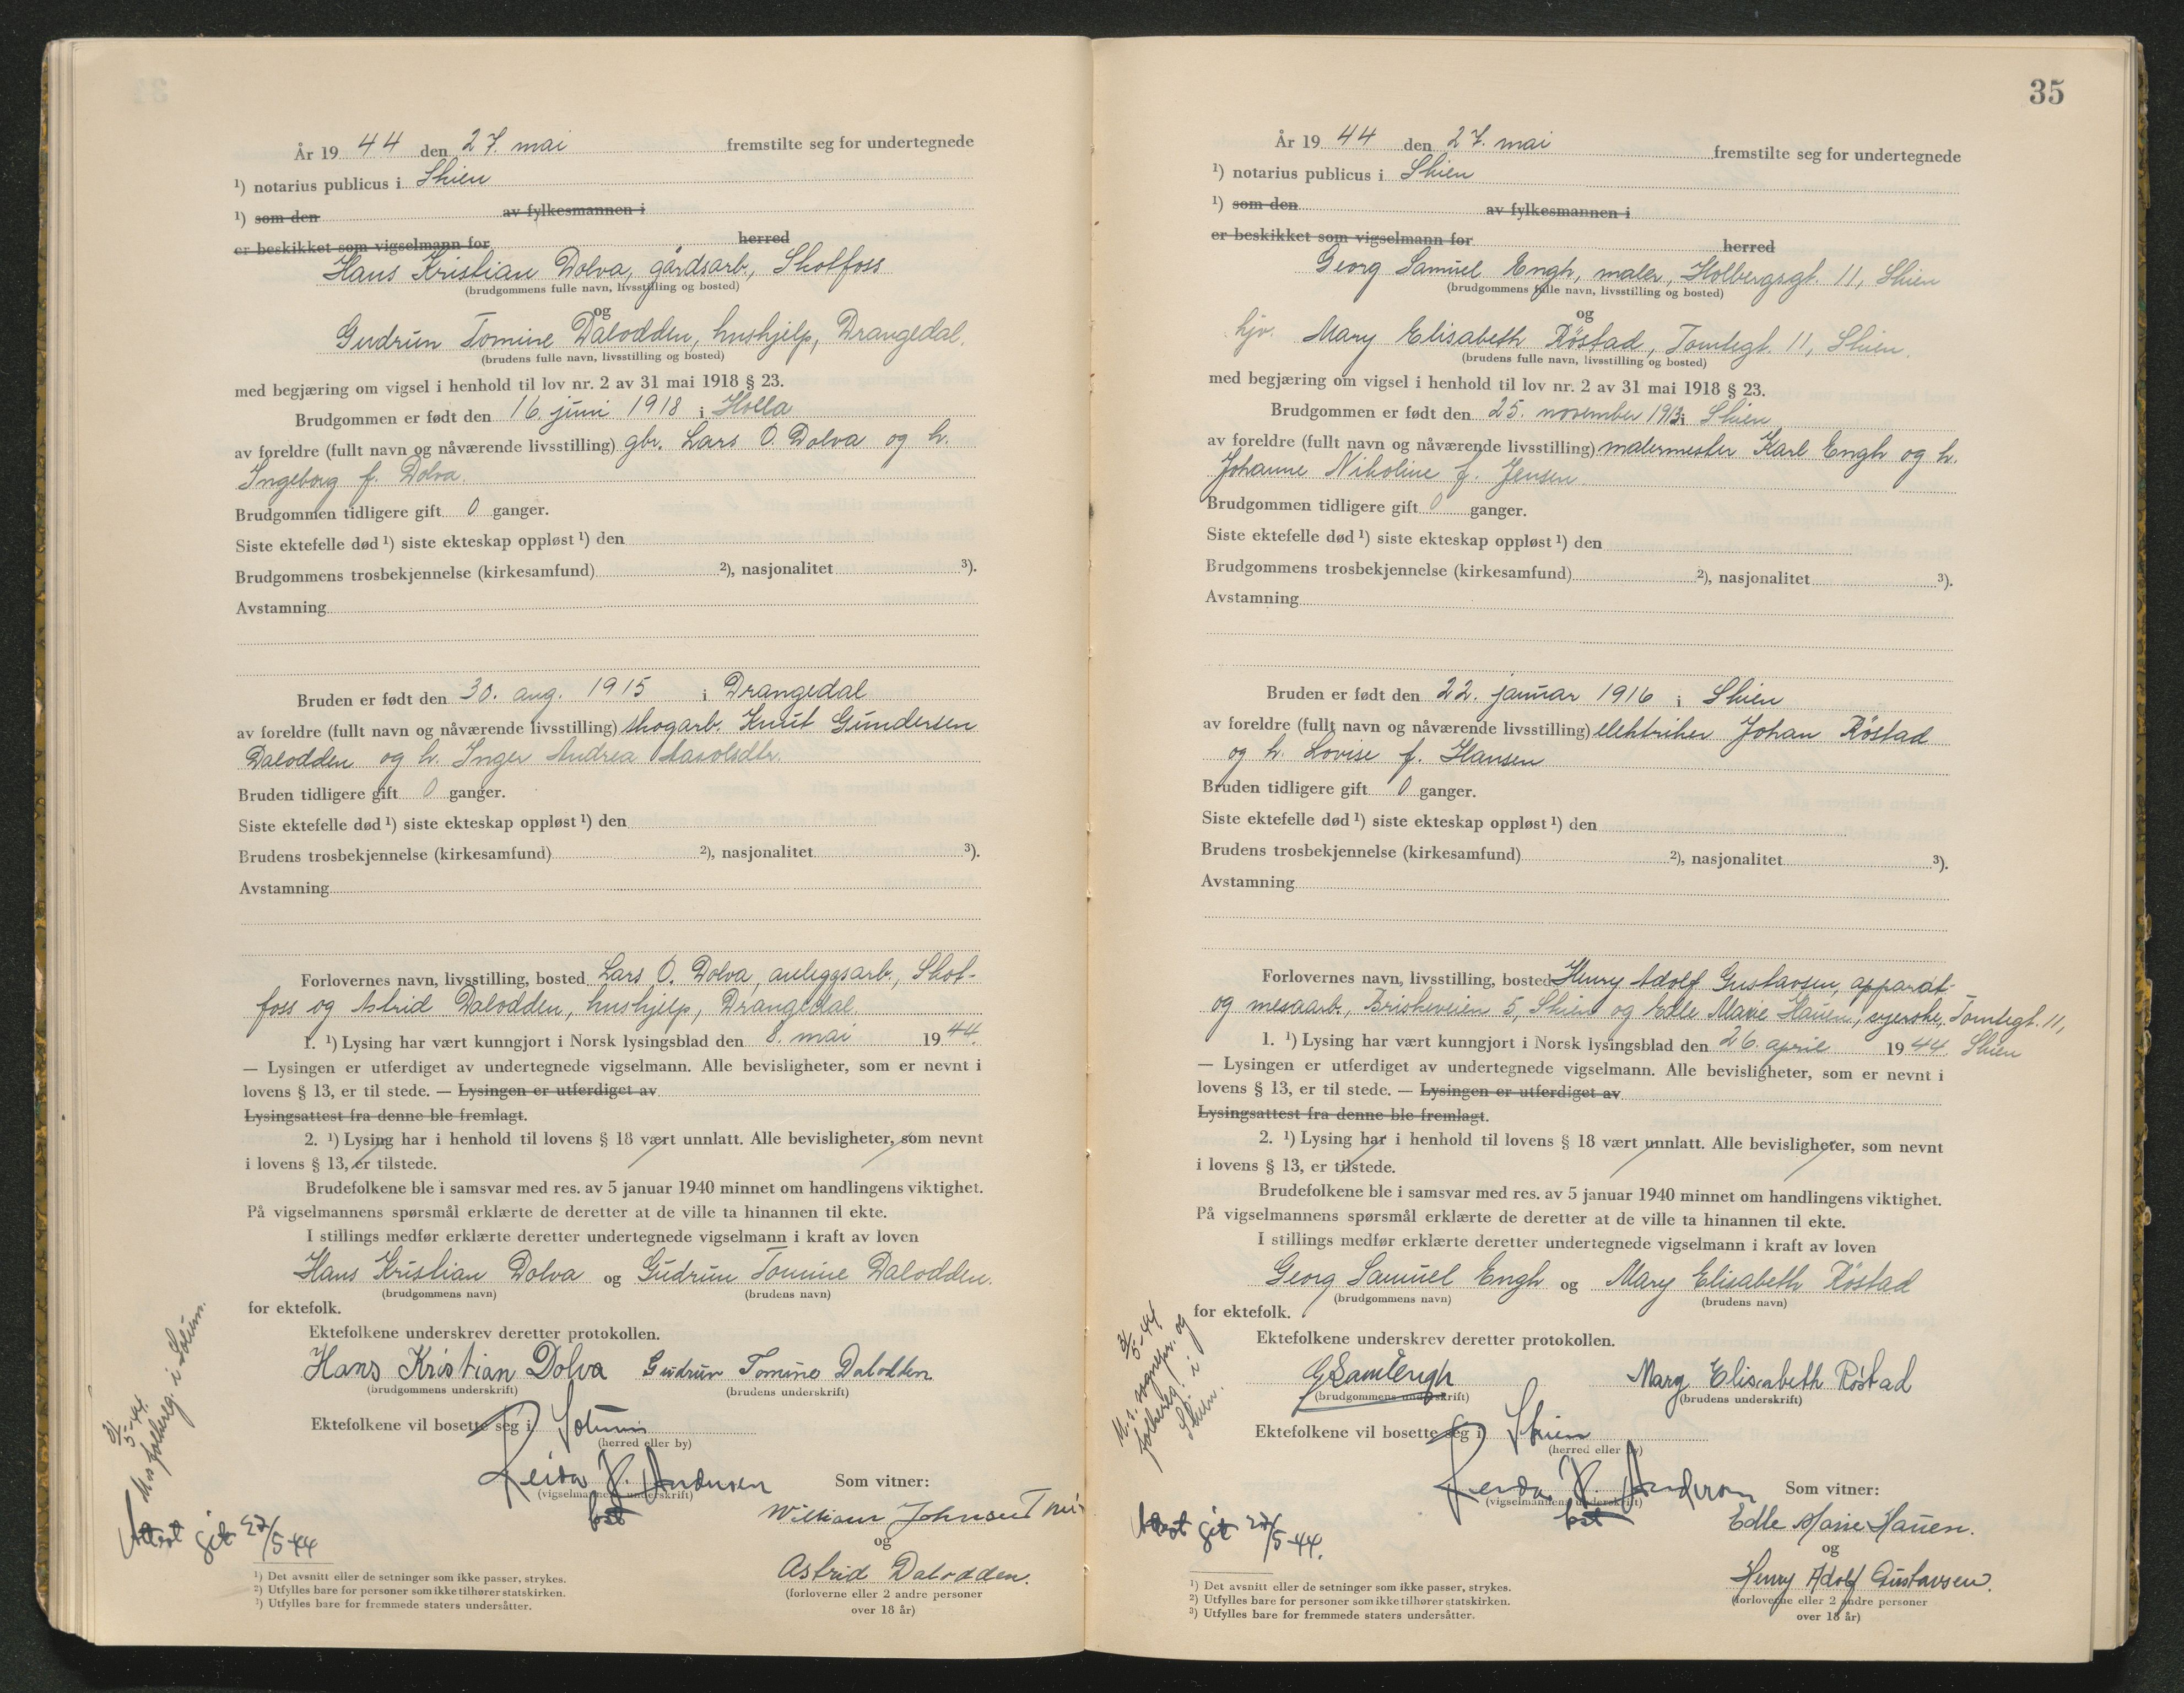 År 19 44 den 27. mai fremstilte seg for undertegnede
¹) notarius publicus i Skien
¹) som den av fylkesmannen i
er beskikket som vigselmann for herred
Hans Kristian Dolva, gårdsarb., Skotfoss
(brudgommens fulle navn, livsstilling og bosted)
og
Gudrun Tomine Dalodden, hushjelp, Drangedal.
(brudens fulle navn, livsstilling og bosted)
med begjæring om vigsel i henhold til lov nr. 2 av 31 mai 1918 § 23.
Brudgommen er født den 16. juni 1918 i Holla
av foreldre (fullt navn og nåværende livsstilling) gbr. Lars O. Dolva og h.
Ingeborg f. Dolva.
Brudgommen tidligere gift 0 ganger.
Siste ektefelle død ¹) siste ekteskap oppløst ¹) den
Brudgommens trosbekjennelse (kirkesamfund) ²), nasjonalitet ³).
Avstamning
Bruden er født den 30. aug. 1915 i Drangedal
av foreldre (fullt navn og nåværende livsstilling) skogarb. Knut Gundersen
Dalodden og h. Inger Andrea
Bruden tidligere gift 0 ganger.
Siste ektefelle død ¹) siste ekteskap oppløst ¹) den
Brudens trosbekjennelse (kirkesamfund) ²), nasjonalitet ³).
Avstamning
Forlovernes navn, livsstilling, bosted Lars O. Dolva, anleggsarb., Skot-
foss og Astrid Dalodden, hushjelp, Drangedal.
1. ¹) Lysing har vært kunngjort i Norsk lysingsblad den 8. mai 19 44.
— Lysingen er utferdiget av undertegnede vigselmann. Alle bevisligheter, som er nevnt i
lovens § 13, er til stede. — Lysingen er utferdiget av
Lysingsattest fra denne ble fremlagt.
2. ¹) Lysing har i henhold til lovens § 18 vært unnlatt. Alle bevisligheter, som nevnt
i lovens § 13, er tilstede.
Brudefolkene ble i samsvar med res. av 5 januar 1940 minnet om handlingens viktighet.
På vigselmannens spørsmål erklærte de deretter at de ville ta hinannen til ekte.
I stillings medfør erklærte deretter undertegnede vigselmann i kraft av loven
Hans Kristian Dolva og Gudrun Tomine Dalodden.
(brudgommens navn) (brudens navn)
for ektefolk.
Ektefolkene underskrev deretter protokollen.
Hans Kristian Dolva Gudrun Tomine Dalodden
(brudgommens underskrift) (brudens underskrift)
Ektefolkene vil bosette seg i Solum
(herred eller by)
Reidar R. Andersen Som vitner:
(vigselmannens underskrift)
bst
William Johnsen
og
Astrid Dalodden.
(forloverne eller 2 andre personer
over 18 år)
3/5-44.
M. s. folkereg. i Solum.
Attest git 27/5-44
¹) Det avsnitt eller de setninger som ikke passer, strykes.
²) Utfylles bare for personer som ikke tilhører statskirken.
³) Utfylles bare for fremmede staters undersåtter.
35
År 19 44 den 27. mai fremstilte seg for undertegnede
¹) notarius publicus i Skien
¹) som den av fylkesmannen i
er beskikket som vigselmann for herred
Georg Samuel Engh, maler, Holbergsgt. 11, Skien
(brudgommens fulle navn, livsstilling og bosted)
og
hjv. Mary Elisabeth Röstad, Tomtegt. 11, Skien.
(brudens fulle navn, livsstilling og bosted)
med begjæring om vigsel i henhold til lov nr. 2 av 31 mai 1918 § 23.
Brudgommen er født den 25. november 1913 i Skien
av foreldre (fullt navn og nåværende livsstilling) malermester Karl Engh og h.
Johanne Nikoline f. Jensen
Brudgommen tidligere gift 0 ganger.
Siste ektefelle død ¹) siste ekteskap oppløst ¹) den
Brudgommens trosbekjennelse (kirkesamfund) ²), nasjonalitet ³).
Avstamning
Bruden er født den 22. januar 1916 i Skien
av foreldre (fullt navn og nåværende livsstilling) elektriker Johan Röstad
og h. Lovise f. Hansen
Bruden tidligere gift 0 ganger.
Siste ektefelle død ¹) siste ekteskap oppløst ¹) den
Brudens trosbekjennelse (kirkesamfund) ²), nasjonalitet ³).
Avstamning
Forlovernes navn, livsstilling, bosted Henry Adolf Gustavsen, apparat-
og mesaarb., Briskeveien 5, Skien og Edle Marie Hauen, syerske, Tomtegt. 11,
1. ¹) Lysing har vært kunngjort i Norsk lysingsblad den 26. april 19 44. Skien
— Lysingen er utferdiget av undertegnede vigselmann. Alle bevisligheter, som er nevnt i
lovens § 13, er til stede. — Lysingen er utferdiget av
Lysingsattest fra denne ble fremlagt.
2. ¹) Lysing har i henhold til lovens § 18 vært unnlatt. Alle bevisligheter, som nevnt
i lovens § 13, er tilstede.
Brudefolkene ble i samsvar med res. av 5 januar 1940 minnet om handlingens viktighet.
På vigselmannens spørsmål erklærte de deretter at de ville ta hinannen til ekte.
I stillings medfør erklærte deretter undertegnede vigselmann i kraft av loven
Georg Samuel Engh og Mary Elisabeth Röstad
(brudgommens navn) (brudens navn)
for ektefolk.
Ektefolkene underskrev deretter protokollen.
G Saml Engh Mary Elisabeth Röstad
(brudgommens underskrift) (brudens underskrift)
Ektefolkene vil bosette seg i Skien
(herred eller by)
Reidar R. Andersen Som vitner:
(vigselmannens underskrift)
bst
Edle Marie Hauen.
og
Henry Adolf Gustavsen.
(forloverne eller 2 andre personer
over 18 år)
3/5-44
M. s. sognepr. og
folkereg. i
Skien.
Attest git 27/5-44.
¹) Det avsnitt eller de setninger som ikke passer, strykes.
²) Utfylles bare for personer som ikke tilhører statskirken.
³) Utfylles bare for fremmede staters undersåtter.